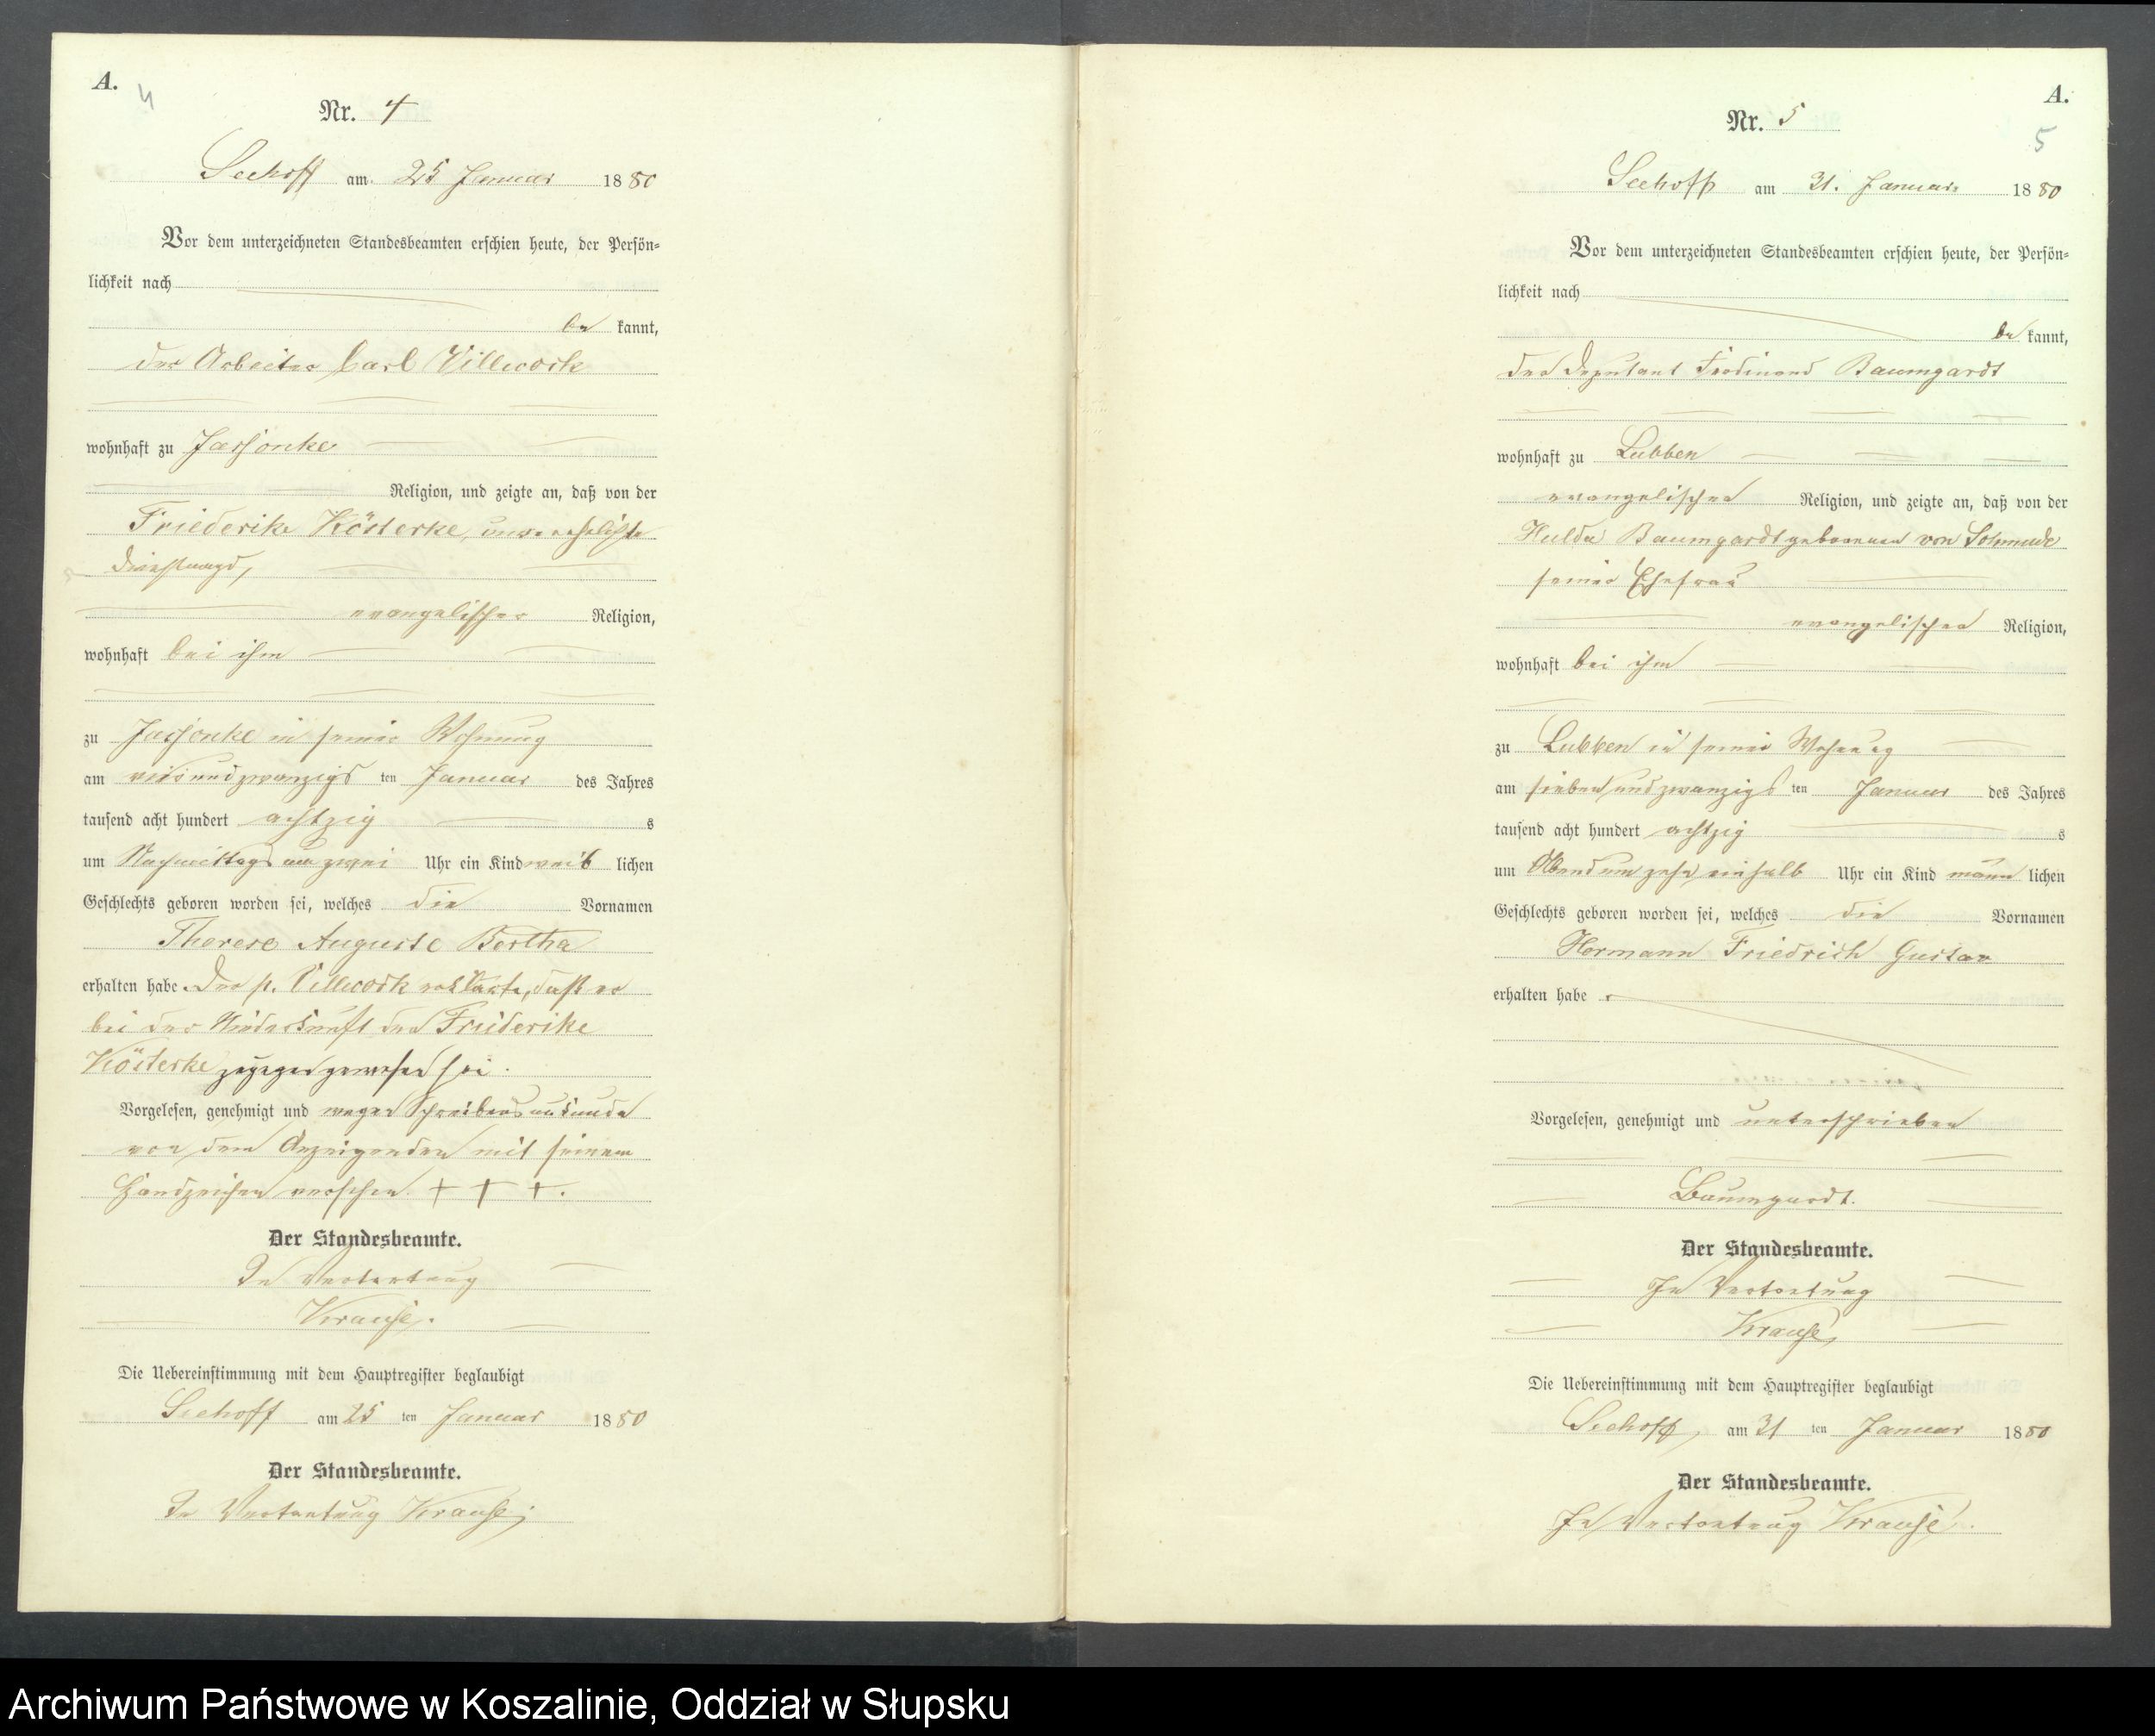 A.
4
Nr. 4
Seehoff am 25 Januar 1880
Vor dem unterzeichneten Standesbeamten erschien heute, der Persön=
lichkeit nach
be kannt,
der Arbeiter Carl Villwock
wohnhaft zu Jassonke
Religion, und zeigte an, daß von der
Friederike Kösterke, unverehelichte
Dienstmagd,
evangelischer Religion,
wohnhaft bei ihm
zu Jassonke in seiner Wohnung
am vierundzwanzigs ten Januar des Jahres
tausend acht hundert achtzig s
um Nachmittags um zwei Uhr ein Kind weib lichen
Geschlechts geboren worden sei, welches die Vornamen
Therese Auguste Bertha
erhalten habe. Der p. Villwock erklärte, daß er
bei der Niederkunft der Friederike
Kösterke zugegen gewesen sei.
Vorgelesen, genehmigt und wegen Schreibensunkunde
von dem Anzeigenden mit seinem
Handzeichen versehen. + + +.
Der Standesbeamte.
In Vertretung
Krause.
Die Uebereinstimmung mit dem Hauptregister beglaubigt
Seehoff am 25 ten Januar 1880
Der Standesbeamte.
In Vertretung Krause
A.
5
Nr. 5
Seehoff am 31. Januar 1880
Vor dem unterzeichneten Standesbeamten erschien heute, der Persön=
lichkeit nach
be kannt,
der Deputant Ferdinand Baumgardt
wohnhaft zu Lubben
evangelischer Religion, und zeigte an, daß von der
Hulda Baumgardt geborenen von Schmude
seiner Ehefrau
evangelischer Religion,
wohnhaft bei ihm
zu Lubben in seiner Wohnung
am siebenundzwanzigs ten Januar des Jahres
tausend acht hundert achtzig s
um Abend um zehn einhalb Uhr ein Kind männ lichen
Geschlechts geboren worden sei, welches die Vornamen
Hermann Friedrich Gustav
erhalten habe.
Vorgelesen, genehmigt und unterschrieben
Baumgardt.
Der Standesbeamte.
In Vertretung
Krause
Die Uebereinstimmung mit dem Hauptregister beglaubigt
Seehoff, am 31 ten Januar 1880
Der Standesbeamte.
In Vertretung Krause.
Archiwum Państwowe w Koszalinie, Oddział w Słupsku